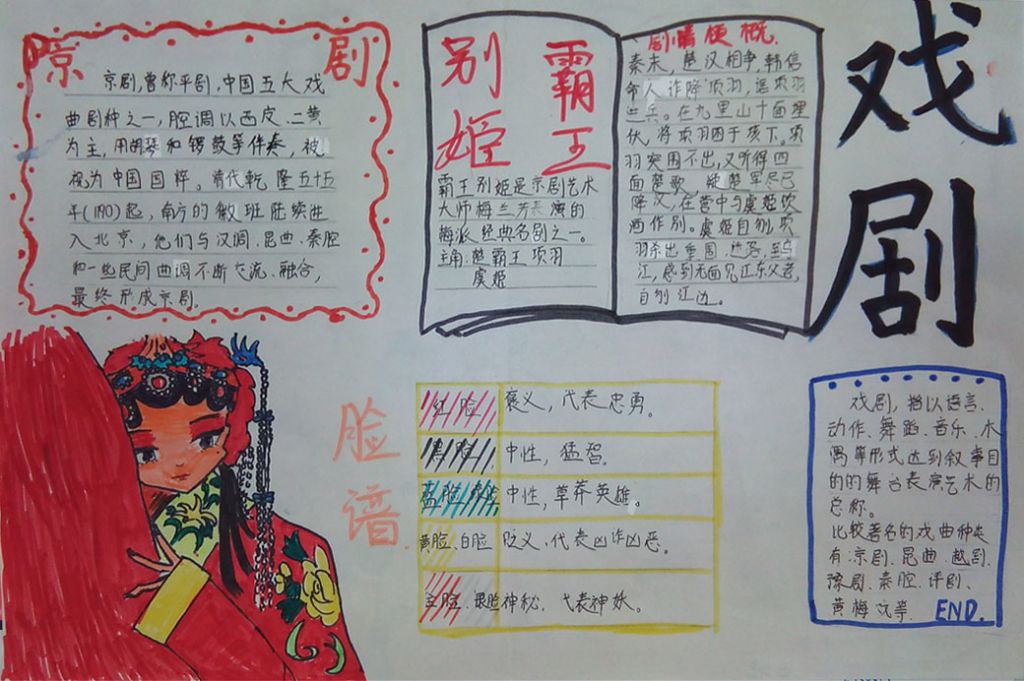 戏剧
京剧
京剧,曾称平剧,中国五大戏
曲剧种之一,腔调以西皮、二黄
为主,用胡琴和锣鼓等伴奏,被
视为中国国粹。清代乾隆五十五
年(1190)起,南方的徽班陆续进
入北京,他们与汉调、昆曲、秦腔
和一些民间曲调不断交流、融合,
最终形成京剧。
霸王
别姬
霸王别姬是京剧艺术
大师梅兰芳表演的
梅派经典名剧之一。
主角:楚霸王 项羽
虞姬
剧情梗概
秦末,楚汉相争,韩信
命人诈降项羽,诓项羽
进兵。在九里山十面埋
伏,将项羽困于垓下。项
羽突围不出,又听得四
面楚歌,疑楚军尽已
降汉,在营中与虞姬饮
酒作别。虞姬自刎,项
羽杀出重围,迷路,至乌
江,感到无面见江东父老,
自刎江边。
脸谱
红脸 褒义,代表忠勇。
黑脸 中性,猛智。
蓝脸 中性,草莽英雄。
黄脸、白脸 贬义、代表凶诈凶恶。
金脸、银脸 神秘、代表神妖。
戏剧,指以语言、
动作、舞蹈、音乐、木
偶等形式达到叙事目
的的舞台表演艺术的
总称。
比较著名的戏曲种类
有:京剧、昆曲、越剧、
豫剧、秦腔、评剧、
黄梅戏等. END.